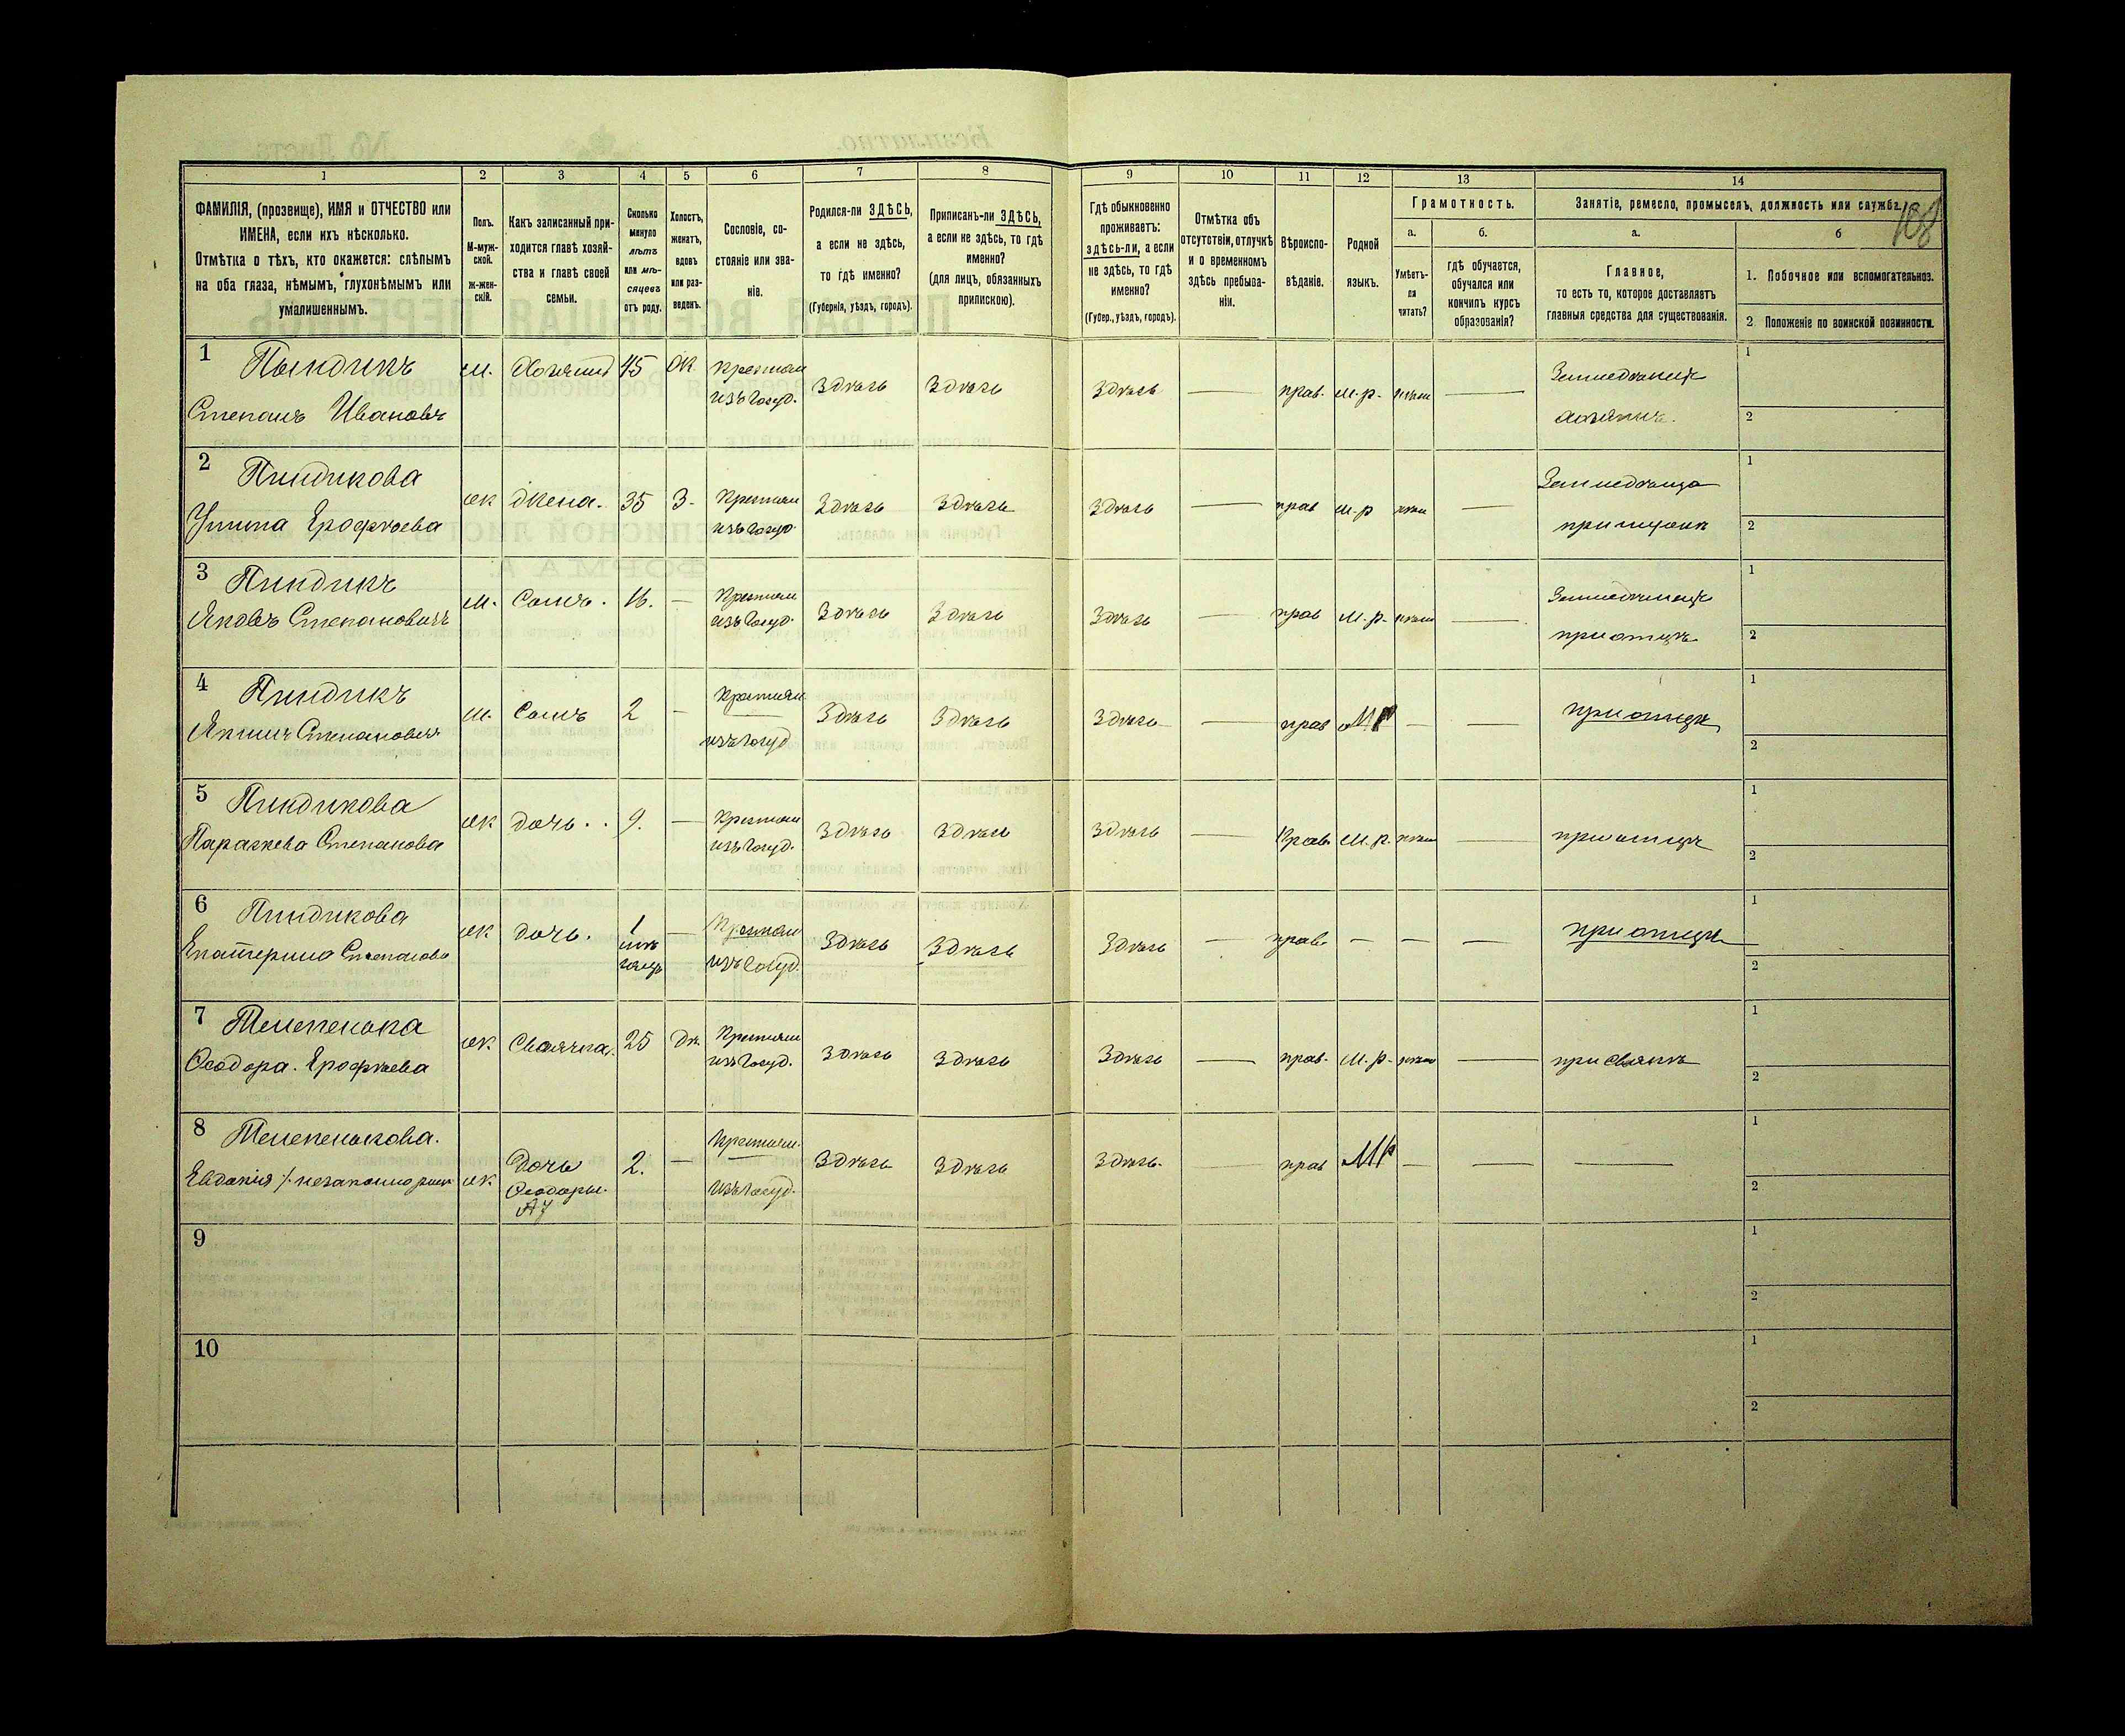 1 2 3 4 5 6 7 8 9 10 11 12 13 14
ФАМИЛІЯ, (прозвище), ИМЯ и ОТЧЕСТВО или
ИМЕНА, если ихъ нѣсколько.
Отмѣтка о тѣхъ, кто окажется: слѣпымъ
на оба глаза, нѣмымъ, глухонѣмымъ или
умалишеннымъ.
Полъ.
М-муж-
ской.
ж-жен-
скій.
Какъ записанный при-
ходится главѣ хозяй-
ства и главѣ своей
семьи.
Сколько
минуло
лѣтъ
или мѣ-
сяцевъ
отъ роду.
Холостъ,
женатъ,
вдовъ
или раз-
веденъ.
Сословіе, со-
стояніе или зва-
ніе.
Родился-ли ЗДѢСЬ,
а если не здѣсь,
то гдѣ именно?
(Губернія, уѣздъ, городъ).
Приписанъ-ли ЗДѢСЬ,
а если не здѣсь, то гдѣ
именно?
(для лицъ, обязанныхъ
припискою).
Гдѣ обыкновенно
проживаетъ:
здѣсь-ли, а если
не здѣсь, то гдѣ
именно?
(Губер., уѣздъ, городъ).
Отмѣтка объ
отсутствіи, отлучкѣ
и о временномъ
здѣсь пребыва-
ніи.
Вѣроиспо-
вѣданіе.
Родной
языкъ.
Грамотность.
а.
Умѣетъ-
ли
читать?
б.
гдѣ обучается,
обучался или
кончилъ курсъ
образованія?
Занятіе, ремесло, промыселъ, должность или служба.
108
а.
Главное,
то есть то, которое доставляетъ
главныя средства для существованія.
б
1. Побочное или вспомогательное.
2 Положеніе по воинской повинности.
1 Пындикъ
Степанъ Ивановъ
м. Хозяинъ 45 Ж. Крестьян
изъ госуд. здѣсь здѣсь здѣсь — прав. м.р. —
хозяинъ.
1
2
2 Пындикова
Ерофѣева
ж жена. 35 З. Крестьян
изъ госуд. здѣсь здѣсь здѣсь — прав м.р —
1
2
3 Пиндикъ
Яковъ Степановичъ
м. Сынъ. 16. — Крестьян
изъ госуд. здѣсь здѣсь здѣсь — прав м.р. —
при отцѣ
1
2
4 Пиндикъ
Степановичъ
м. Сынъ 2 — Крестьян
изъ госуд здѣсь здѣсь здѣсь — прав МР — —
при отцѣ
1
2
5 Пиндикова
Параскева Степанова
ж дочь. 9. — Крестьян
изъ госуд. здѣсь здѣсь здѣсь — Прав. м.р. —
при отцѣ
1
2
6 Пиндикова
Екатерина Степанова
ж дочь. 1
— Крестьян
изъ госуд. здѣсь здѣсь здѣсь — прав. — — —
при отцѣ
1
2
7
Ѳеодора. Ерофѣева
ж. Своячка. 25 Дѣ. Крестьян
изъ госуд. здѣсь здѣсь здѣсь — прав. м.р. —
1
2
8
Евдокія
ж Дочь
Ѳеодоры.
№7
2. — Крестьян.
изъ госуд. здѣсь здѣсь здѣсь. — прав МР — — —
1
2
9
1
2
10
1
2